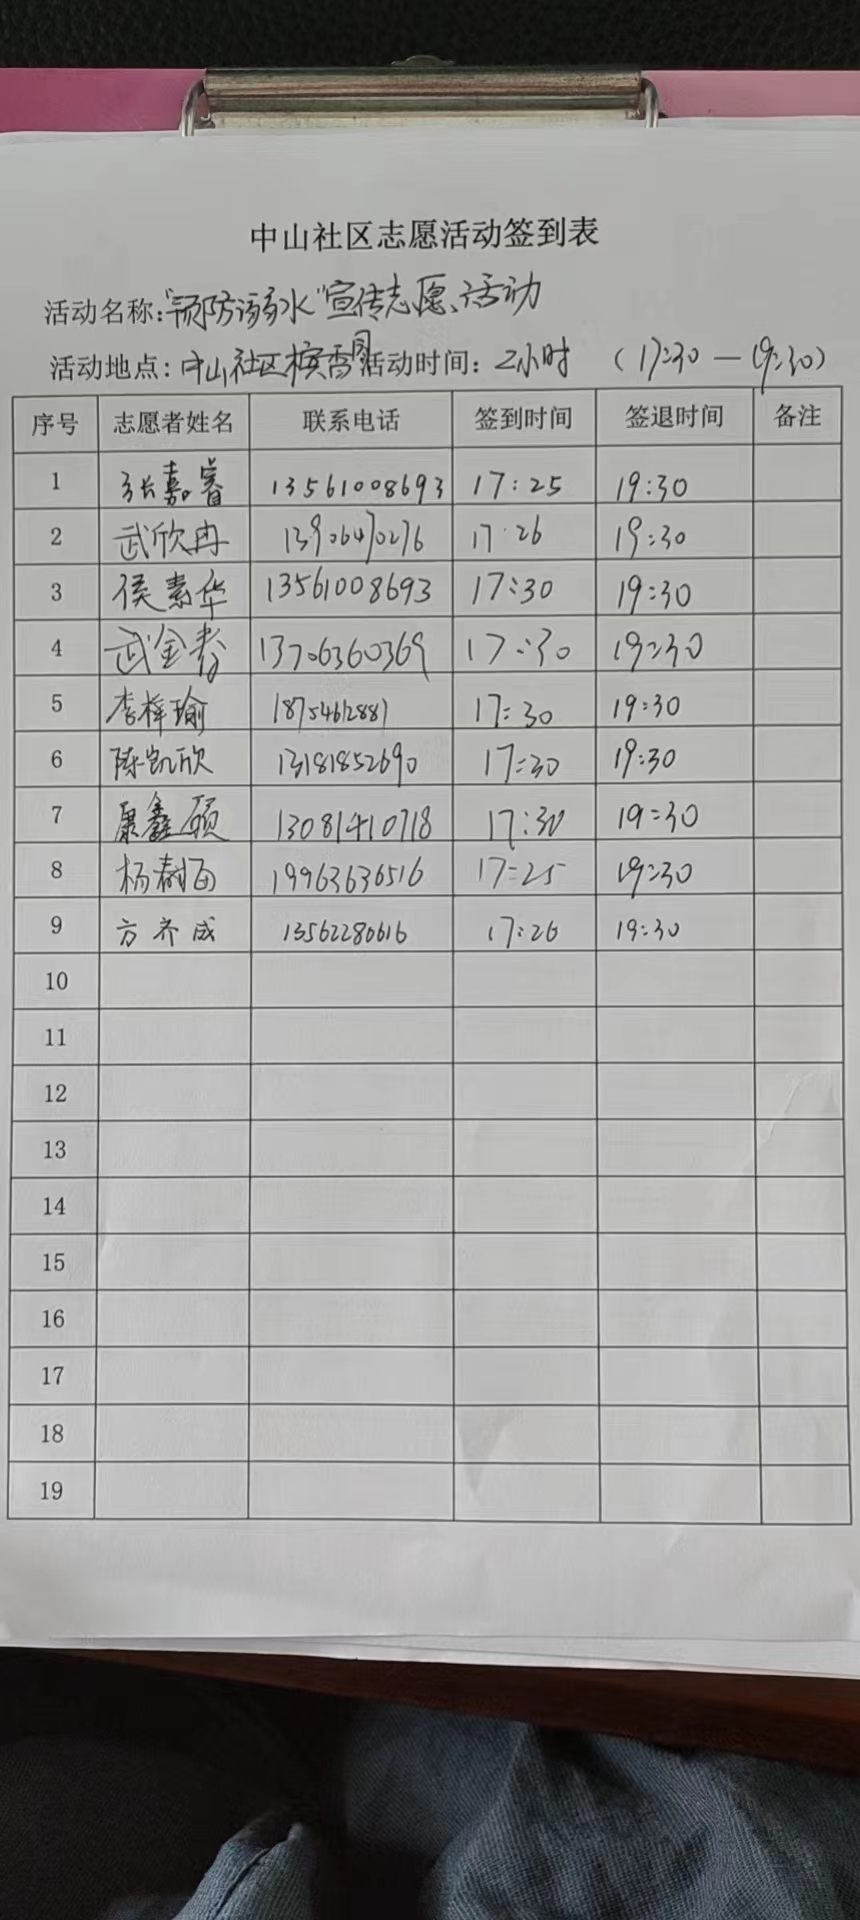 中山社区志愿活动签到表
活动名称："预防溺水"宣传志愿活动
活动地点：中山社区槟香园 活动时间：2小时 （17:30—19:30）
序号 志愿者姓名 联系电话 签到时间 签退时间 备注
1 张嘉睿 13561008693 17:25 19:30
2 武欣冉 13906470276 17:26 19:30
3 侯素华 13561008693 17:30 19:30
4 武金春 13706360369 17:30 19:30
5 李梓瑜 18754612881 17:30 19:30
6 陈凯欣 13181852690 17:30 19:30
7 康鑫硕 13081410718 17:30 19:30
8 杨树函 19963636516 17:25 19:30
9 方齐成 13562280616 17:26 19:30
10
11
12
13
14
15
16
17
18
19